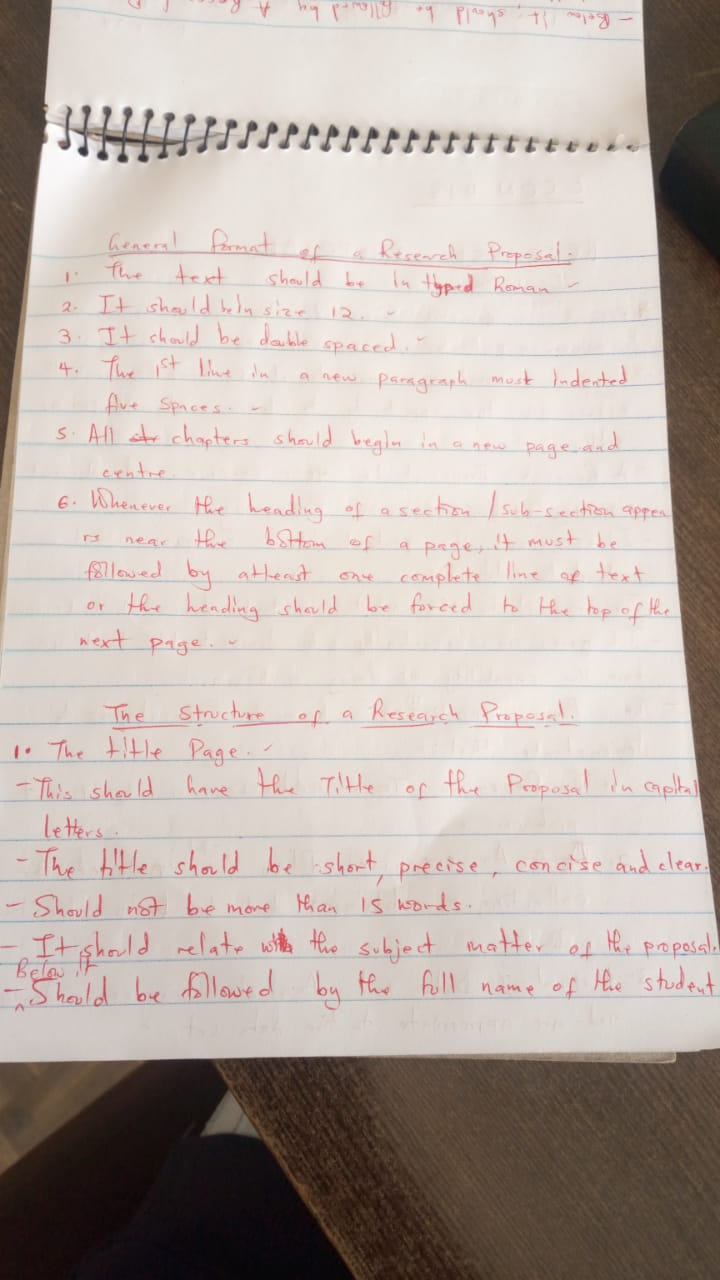 - Below it, should be followed by A
General format of a Research Proposal.
1. The text should be In typed Roman
2. It should be In size 12.
3. It should be double spaced.
4. The 1st line in a new paragraph must Indented
five spaces.
5. All chapters should begin in a new page and
centre.
6. Whenever the heading of a section / sub-section appea
rs near the bottom of a page, it must be
followed by atleast one complete line of text
or the heading should be forced to the top of the
next page.
The Structure of a Research Proposal.
1. The title Page.
- This should have the Title of the Proposal in capital
letters.
- The title should be short, precise, concise and clear.
- Should not be more than 15 words.
- It should relate with the subject matter of the proposal.
Below it
- Should be followed by the full name of the student